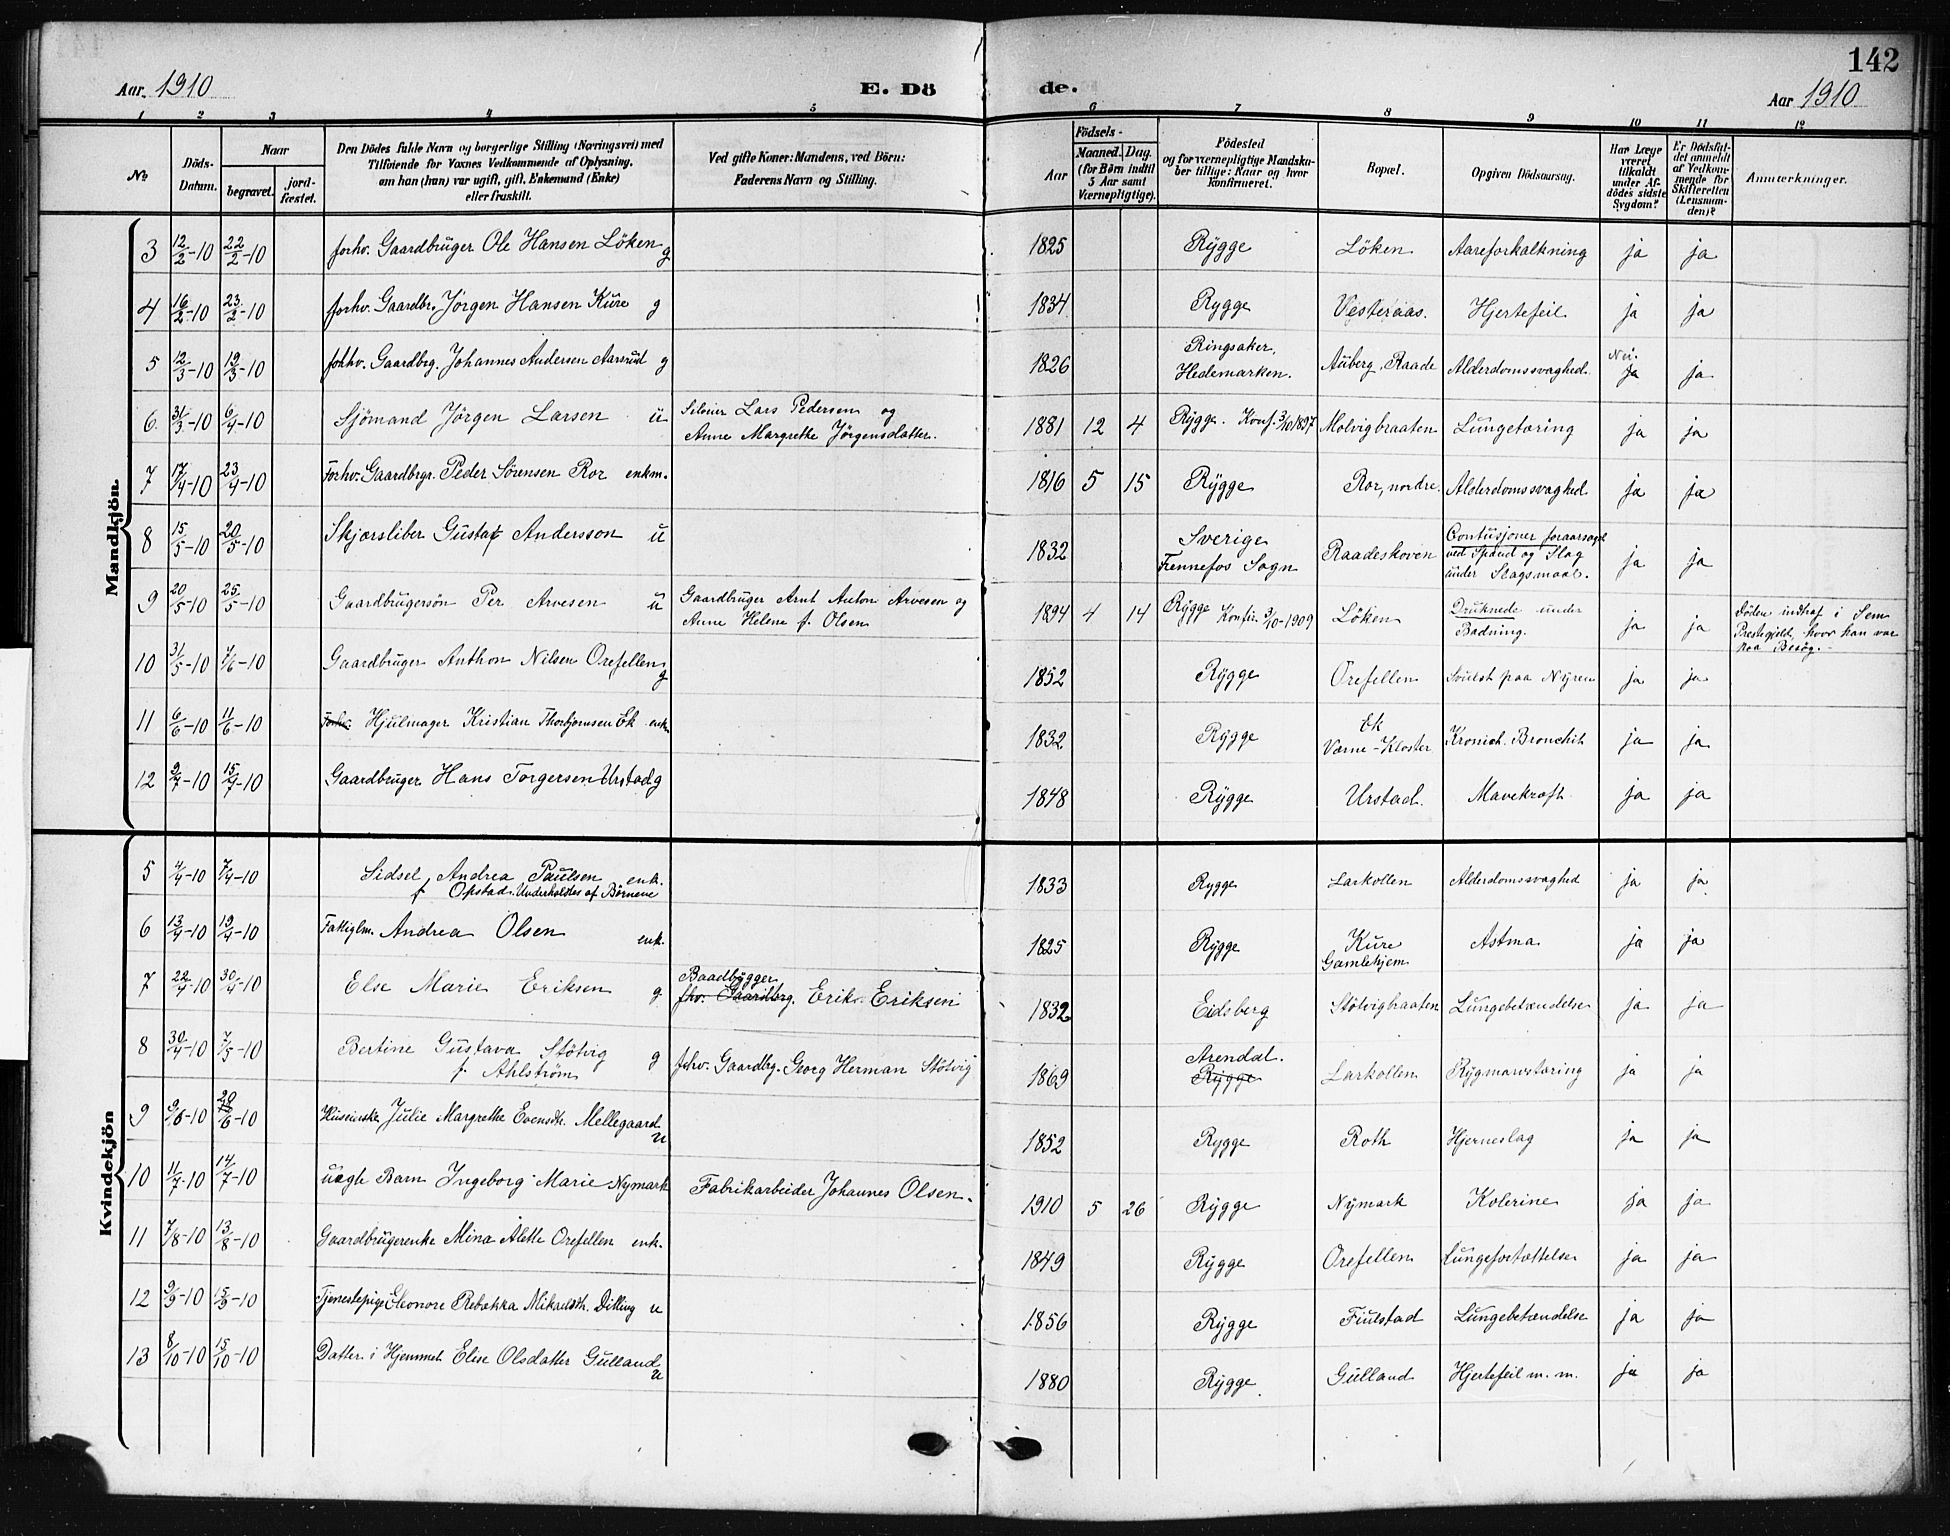 142
Aar 1910 E. Dö de. Aar 1910
1 2 3 4 5 6 7 8 9 10 11 12
No.
Döds-Datum.
Naar
begravet.
jord-fæstet.
Den Dödes fulde Navn og borgerlige Stilling (Næringsvei) med
Tilföiende for Voxnes Vedkommende af Oplysning,
om han (hun) var ugift, gift, Enkemand (Enke)
eller fraskilt.
Ved gifte Koner: Mandens, ved Börn:
Faderens Navn og Stilling.
Födsels-
Aar
Maaned. Dag.
(for Börn indtil
5 Aar samt
Værnepligtige).
Födested
og for værnepligtige Mandska-
ber tillige: Naar og hvor
konfirmeret.
Bopæl.
Opgiven Dödsaarsag.
Har Læge
været
tilkaldt
under Af-
dödes sidste
Sygdom?
Er Dödsfal-
det anmeldt
af Vedkom-
mende for
Skifteretten
(Lensman-
den)?
Anmærkninger.
Mandkjön.
3 12/2-10 22/2-10 forhv. Gaardbruger Ole Hansen Löken g 1825 Rygge Löken Aareforkalkning ja ja
4 16/2-10 23/2-10 forhv. Gaardbr. Jörgen Hansen Kure g 1834 Rygge Vesteraas. Hjertefeil ja ja
5 12/3-10 19/3-10 forhv. Gaardbrg. Johannes Andersen Aarsrud g 1826 Ringsaker, Hedemarken. Auberg, Raade Alderdomssvaghed Nei. ja ja
6. 31/3-10 6/4-10 Sjömand Jörgen Larsen u Lars Pedersen og
Anne Margrethe Jörgensdatter. 1881 12 4 Rygge. Konf. 3/10 1897 Molvigbraaten Lungetæring ja ja
7 17/4-10 23/4-10 Forhv. Gaardbrgr. Peder Sörensen Ror enkm. 1816 5 15 Rygge Ror, nordre. Alderdomssvaghed ja ja
8 15/5-10 20/5-10 Skjærsliber Gustaf Andersson u 1832 Sverige
Fennefos Sogn Raadeskoven Contusjoner foraarsaget
ved Spænd og Slag
under Slagsmaal. ja ja
9 20/5-10 25/5-10 Gaardbrugersön Per Arvesen u Gaardbruger Arnt Anton Arvesen og
Anne Helene f. Olsen 1894 4 14 Rygge Konfir. 3/10-1909 Löken Druknede under
Badning. ja ja Döden indtraf i Sem
Prestegjeld, hvor han var
paa Besög.
10 31/5-10 7/6-10 Gaardbruger Anthon Nilsen Orefellen g 1852 Rygge Orefellen Svulst paa Nyren ja ja
11 6/6-10 11/6-10 Forhv. Hjulmager Kristian Thorbjornsen Ek enk. 1832 Rygge Ek
Værne-Kloster Kronich. Bronchit ja ja
12 9/7-10 15/7-10 Gaardbruger Hans Torgersen Urstad g 1848 Rygge Urstad. Mavekræft ja ja
Kvindekjön
5 4/4-10 7/4-10 Sidsel Andrea Paulsen enk.
f. Opstad. Underholdtes af Börnene 1833 Rygge Larkollen Alderdomssvaghed ja ja
6 13/4-10 19/4-10 Fattiglm. Andrea Olsen enk. 1825 Rygge Kure
Gamlehjem Astma ja ja
7 22/4-10 30/4-10 Else Marie Eriksen g Baadbygger
fhv. Gaardbrg. Erik Eriksen 1832 Eidsberg Stötvigbraaten Lungebetændelse ja ja
8 30/4-10 7/5-10 Bertine Gustava Stötvig g
f. Ahlström forhv. Gaardbrg. Georg Herman Stötvig 1869 Arendal.
Rygge Larkollen Rygmarvstæring ja ja
9 9/6-10 20/6-10 Huseierske Julie Margrethe Evensdtr. Mellegaard u 1852 Rygge Roth Hjerneslag ja ja
10 11/7-10 14/7-10 uægte Barn Ingeborg Marie Nymark Fabrikarbeider Johannes Olsen. 1910 5 26 Rygge Nymark Kolerine ja ja
11 7/8-10 13/8-10 Gaardbrugerenke Mina Alette Orefellen enk. 1849 Rygge Orefellen Lungefortættelse ja ja
12 9/9-10 15/9-10 Tjenestepige Eleonore Rebekka Mikaelsdtr. Dilling u 1856 Rygge Fiulstad Lungebetændelse ja ja
13 8/10-10 15/10-10 Datter i Hjemmet Elise Olsdatter Gulland u 1880 Rygge Gulland Hjertefeil m. m. ja ja